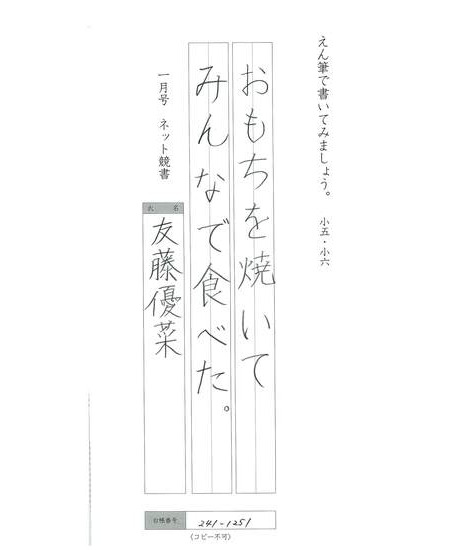 えん筆で書いてみましょう。 小五・小六
おもちを焼いて
みんなで食べた。
一月号 ネット競書
氏名
友藤優菜
台帳番号 241-1251
(コピー不可)